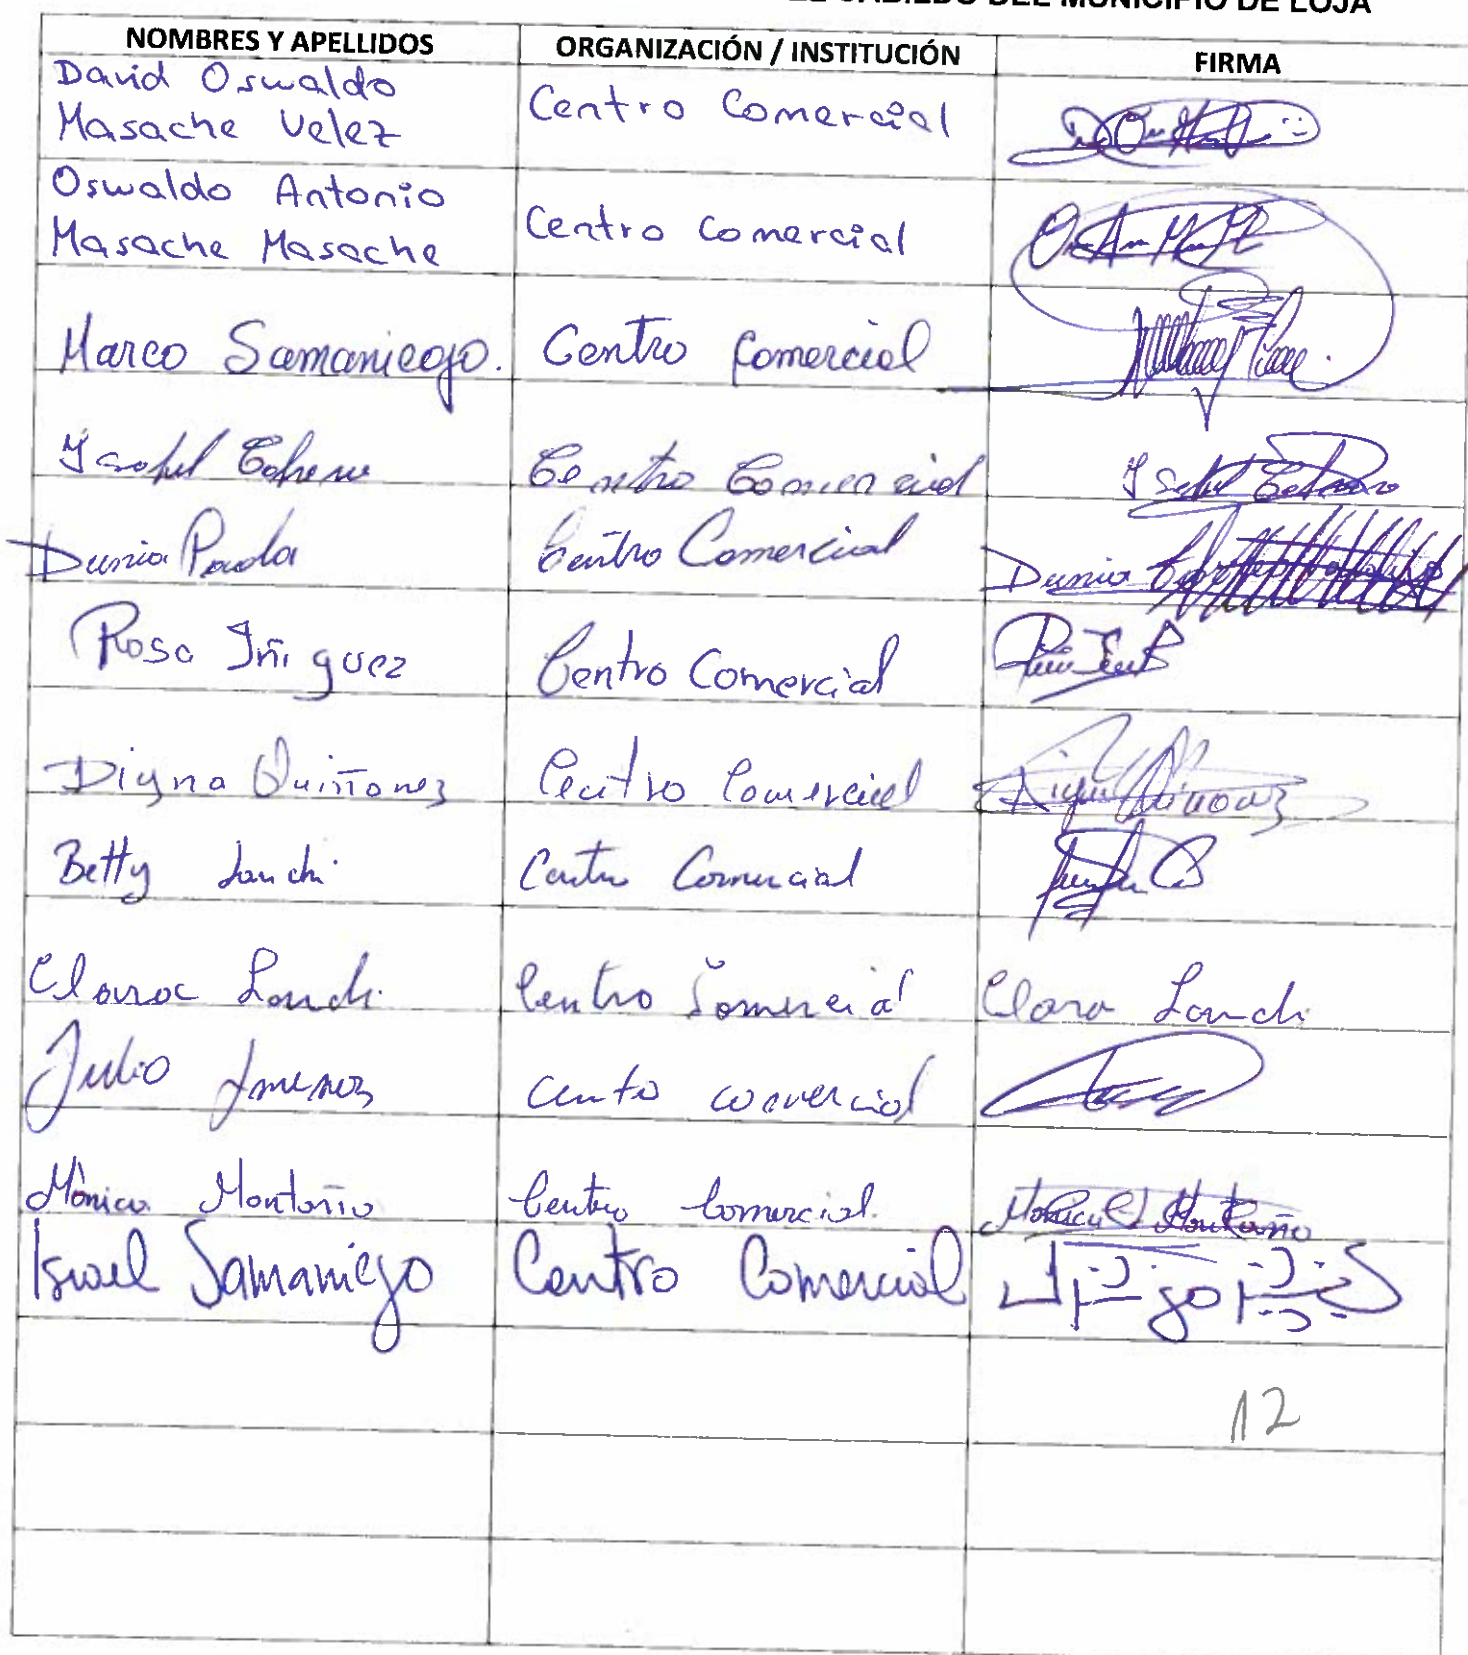 EL CABILDO DEL MUNICIPIO DE LOJA
NOMBRES Y APELLIDOS ORGANIZACIÓN / INSTITUCIÓN FIRMA
David Oswaldo
Masache Velez Centro Comercial
Oswaldo Antonio
Masache Masache Centro Comercial
Marco Samaniego. Centro Comercial
Isabel Centro Comercial Isabel
Dunia Paola Centro Comercial Dunia
Rosa Iñiguez Centro Comercial
Digna Quiñonez Centro Comercial
Betty Lanchi Centro Comercial
Clara Lanchi Centro Comercial Clara Lanchi
Julio Jimenez Centro comercial
Mónica Montaño Centro Comercial. Monica Montaño
Israel Samaniego Centro Comercial
12